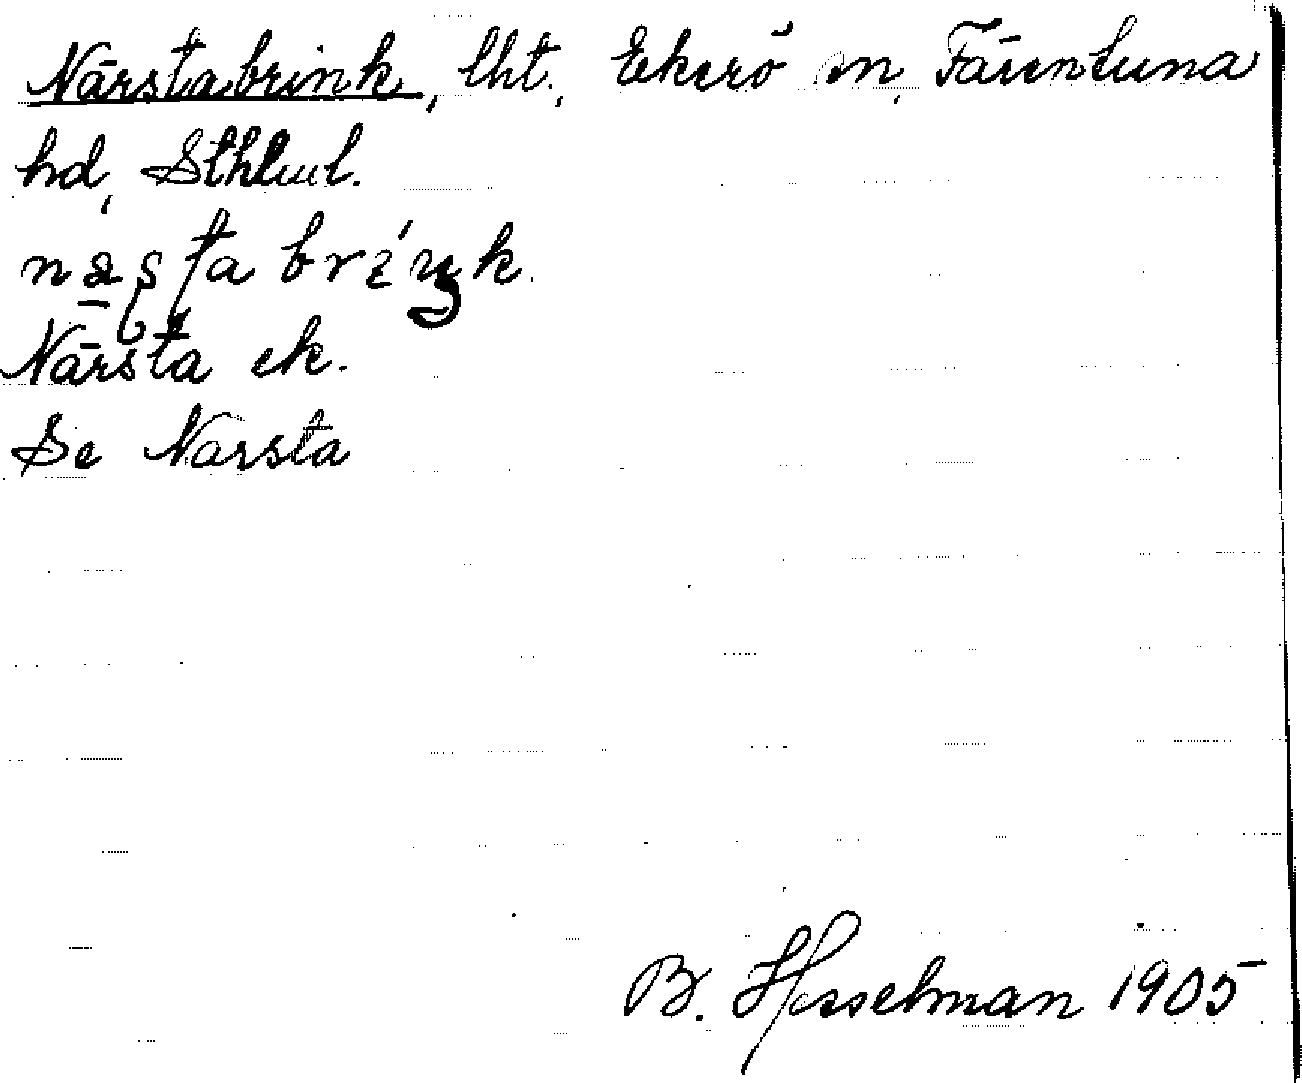 Närstabrink, lht., Ekerö sn, Färentuna
hd, Sthlm l.
Närsta ek.
Se Närsta
B. Hesselman 1905